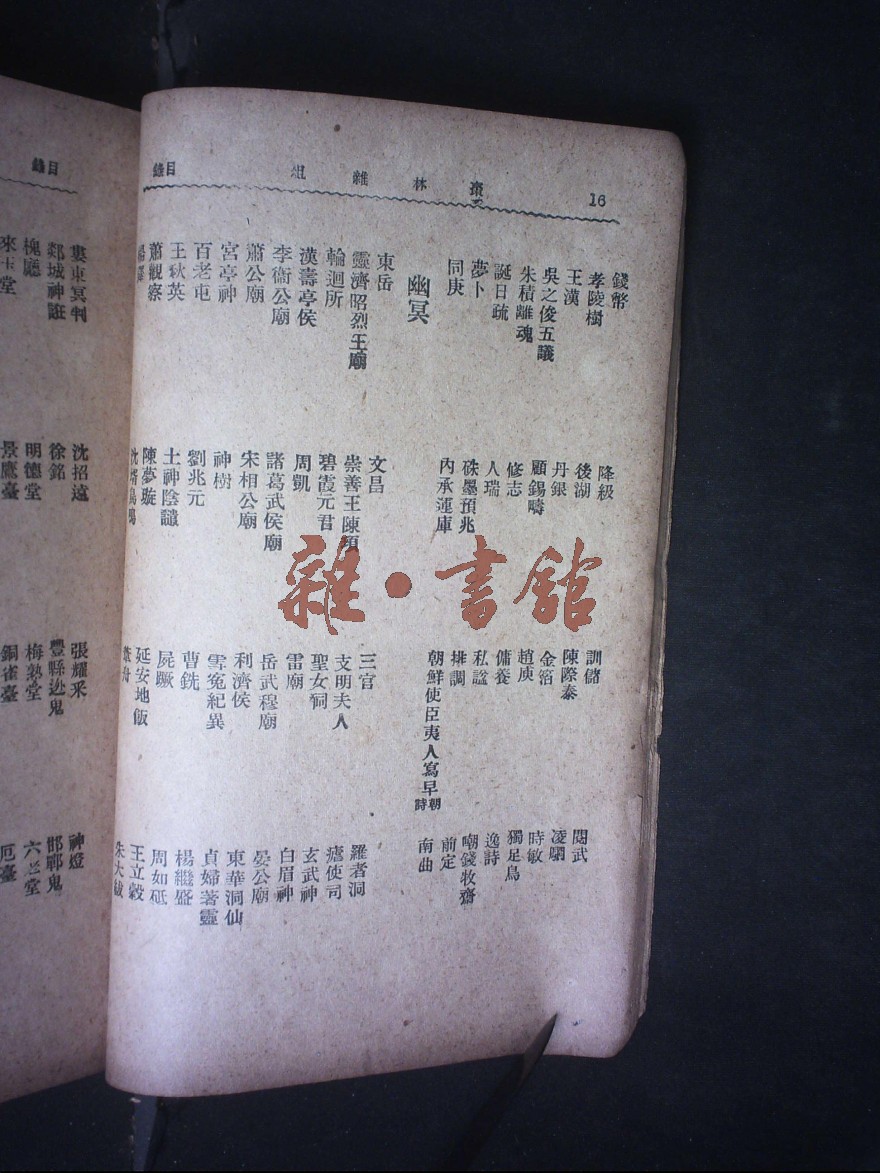 16
棗林雜俎
目錄
錢幣 降級 訓儲 閱武
孝陵樹 後湖 陳際泰 凌駉
王漢 丹銀 金箔 時敏
吳之俊五議 顧錫疇 趙庾 獨足鳥
朱積離魂 修志 傭養 逸詩
誕日疏 人瑞 私諡 嘲錢牧齋
夢卜 硃墨預兆 堪調 前定
同庚 內承運庫 朝鮮使臣夷人寫早朝詩 南曲
幽冥
東岳 文昌 三官 羅者洞
靈濟昭烈王廟 崇善王陳頊 支明夫人 瘧使司
輪迴所 碧霞元君 聖女祠 玄武神
漢壽亭侯 周凱 雷廟 白眉神
李衞公廟 諸葛武侯廟 岳武穆廟 晏公廟
蕭公廟 宋相公廟 利濟侯 東華洞仙
宮亭神 神樹 雪寃紀異 貞婦著靈
百老屯 劉兆元 曹銑 楊繼盛
王秋英 土神陰讖 屍蹶 周如砥
蕭觀察 陳夢璇 延安地飯 王立轂
朱大紱
目錄
婁東冥判 沈招遠 張耀采 神燈
郯城神誑 徐銘 豐縣迯鬼 邯鄲鬼
槐廳 明德堂 梅熟堂 六老堂
來卡堂 景鷹臺 銅雀臺 厄臺
雜·書館